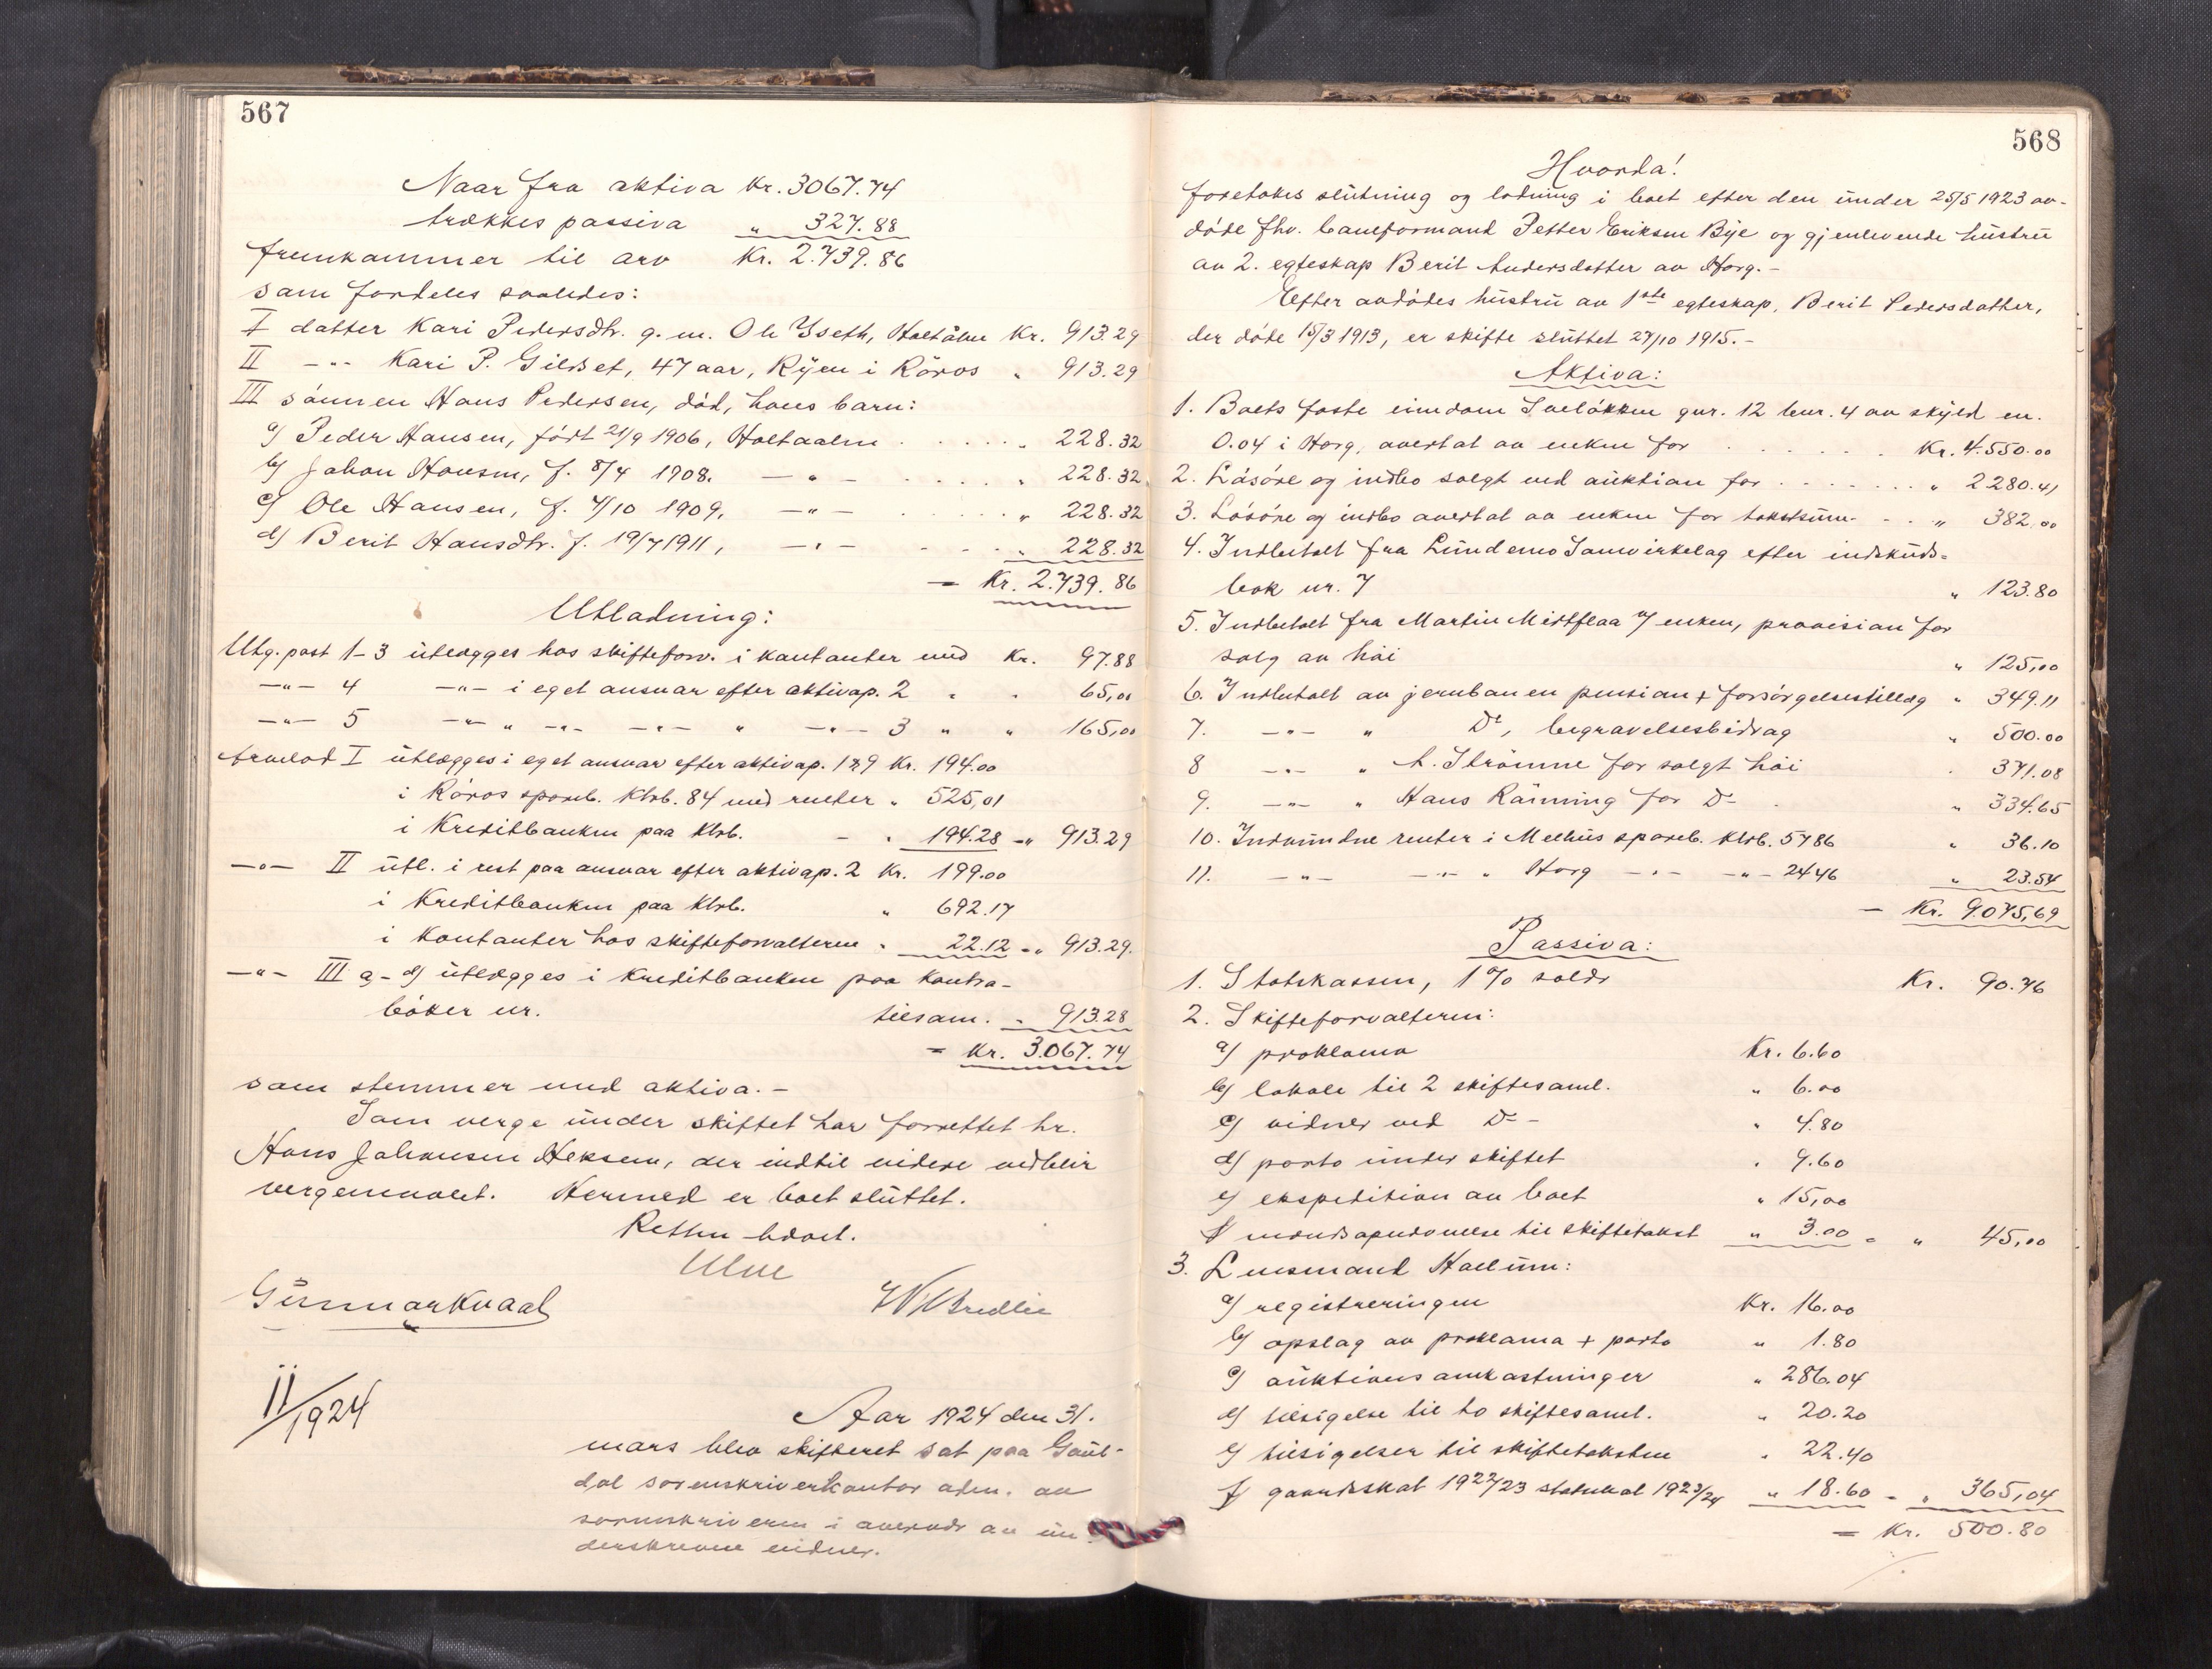 567
Naar fra aktiva Kr. 3067.74
trækkes passiva " 327.88
fremkommer til arv Kr. 2.739.86
som fordeles saaledes:
I datter Kari Pedersdtr. g. m. Ole Yseth, Holtålen Kr. 913.29
II -"- Kari P. Gilset, 47 aar, Ryen i Röros " 913.29
III sönnen Hans Pedersen, död, hans barn:
a) Peder Hansen, födt 21/9 1906, Holtaalen . . . . . . " 228.32
b) Johan Hansen, f. 8/4 1908. -"- . . . . . " 228.32
c) Ole Hansen, f. 4/10 1909, -"- . . . . . " 228.32
d) Berit Hansdtr. f. 19/7 1911, -"- . . . . " 228.32
= Kr. 2.739.86
Utlodning:
Utg. post 1-3 utlægges hos skifteforv. i kontanter med Kr. 97.88
-"- 4 -"- i eget ansvar efter aktivap. 2 " " 65,00
-"- 5 -"- " -"- -"- " -"- 3 " " 165,00
Arvelod I utlægges i eget ansvar efter aktivap. 1 & 9 Kr. 194.00
i Röros spareb. Ktrb. 84 med renter " 525,01
i Kreditbanken paa Ktrb. - " 194.28 = " 913.29
-"- II utl. i rest paa ansvar efter aktivap. 2 Kr. 199.00
i Kreditbanken paa Ktrb. " 692.17
i Kontanter hos skifteforvalteren " 22.12 = " 913.29.
-"- III a-d) utlægges i Kreditbanken paa Kontra-
böker nr. tilsam. " 913.28
= Kr. 3.067.74
som stemmer med aktiva. -
Som verge under skiftet har forrettet hr.
Hans Johansen Heksem, der indtil videre vedblir
vergemaalet. Hermed er boet sluttet.
Retten hævet.
Ulve
Gunnar Kvaal
11/1924
Aar 1924 den 31.
mars blev skifteret sat paa Gaul-
dal sorenskriverkontor adm. av
sorenskriveren i overvær av un-
derskrevne vidner.
568
Hvorda!
foretokes slutning og lodning i boet efter den under 25/5 1923 av-
döde fhv. baneformand Petter Eriksen Bye og gjenlevende hustru
av 2. egteskap Berit Andersdatter av Horg. -
Efter avdödes hustru av 1ste egteskap, Berit Pedersdatter,
der döde 15/3 1913, er skifte sluttet 27/10 1915. -
Aktiva:
1. Boets faste eiendom gnr. 12 bnr. 4 av skyld m.
0.04 i Horg, overtat av enken for . . . . . . Kr. 4.550.00
2. Lösöre og indbo solgt ved auktion for . . . . . . . " 2280.41
3. Lösöre og indbo overtat av enken for takstsum - . . " 382.00
4. Indbetalt fra Lundemo Samvirkelag efter indskuds-
bok nr. 7 " 123.80
5. Indbetalt fra Martin Midtflaa v/ enken, provision for
salg av höi " 125,00
6. Indbetalt av jernbanen pension + forsörgelsestillæg " 349.11
7. -"- " Do, begravelsesbidrag " 500.00
8 -"- " A. Strömme for solgt höi " 371.08
9. -"- " Hans Rönning for Do . " 334.65
10. Indvundne renter i Melhus spareb. Ktrb. 5786 " 36.10
11. -"- -"- " Horg -"- -"- 2446 " 23.54
= Kr. 9.075,69
Passiva:
1. Statskassen, 1% Kr. 90.76
2. Skifteforvalteren:
a) proklama Kr. 6.60
b) lokale til 2 skiftesaml. " 6.00
c) vidner ved Do - " 4.80
d) porto under skiftet " 9.60
e) ekspedition av boet " 15,00
f) mandsopnævnelse til skiftetakst " 3.00 = " 45,00
3. Lensmand Hollum:
a) registreringen Kr. 16.00
b) opslag av proklama + porto " 1.80
c) auktions omkostninger " 286.04
d) tilsigelse til to skiftesaml. " 20.20
e) tilsigelser til skiftetaksten " 22.40
f) gaardskat 1922/23 1923/24 " 18.60 = " 365,04
= Kr. 500.80